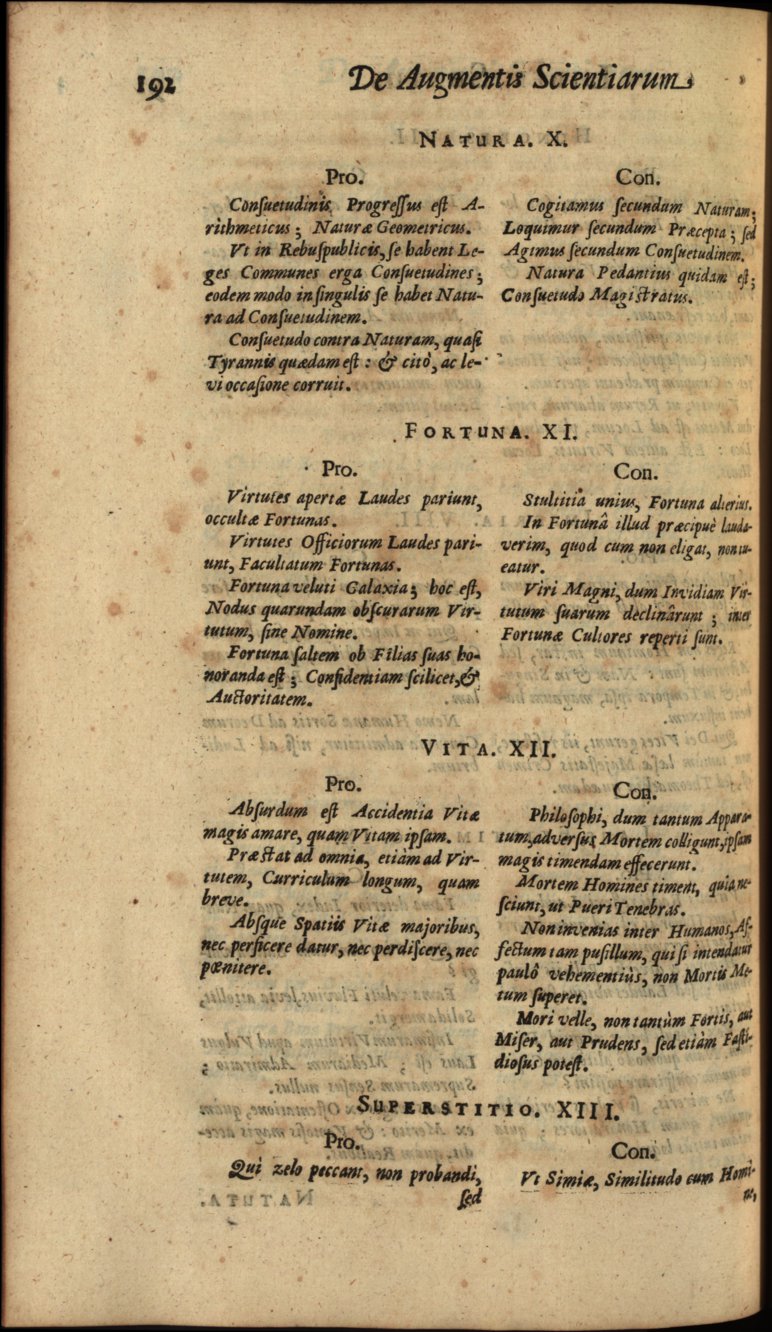 192
De Augmentis Scientiarum
NATURA. X.
Pro.
Conſuetudinis Progreſſus eſt A-
rithmeticus; Naturæ Geometricus.
Vt in Rebuſpublicis, ſe habent Le-
ges Communes erga Conſuetudines;
eodem modo in ſingulis ſe habet Natu-
ra ad Conſuetudinem.
Conſuetudo contra Naturam, quaſi
Tyrannis quædam eſt: & citò, ac le-
vi occaſione corruit.
Con.
Cogitamus ſecundum Naturam;
Loquimur ſecundum Præcepta; ſed
Agimus ſecundum Conſuetudinem.
Natura Pedantius quidam eſt;
Conſuetudo Magiſtratus.
FORTUNA. XI.
Pro.
Virtutes apertæ Laudes pariunt,
occultæ Fortunas.
Virtutes Officiorum Laudes pari-
unt, Facultatum Fortunas.
Fortuna veluti Galaxia; hoc eſt,
Nodus quarundam obſcurarum Vir-
tutum, ſine Nomine.
Fortuna ſaltem ob Filias ſuas ho-
noranda eſt; Confidentiam ſcilicet, &
Auctoritatem.
Con.
Stultitia unius, Fortuna alterius.
In Fortunâ illud præcipuè lauda-
verim, quod cum non eligat, non tu-
eatur.
Viri Magni, dum Invidiam Vir-
tutum ſuarum declinârunt; inter
Fortunæ Cultores reperti ſunt.
VITA. XII.
Pro.
Abſurdum eſt Accidentia Vitæ
magis amare, quam Vitam ipſam.
Præſtat ad omnia, etiàm ad Vir-
tutem, Curriculum longum, quam
breve.
Abſque Spatiis Vitæ majoribus,
nec perficere datur, nec perdiſcere, nec
pœnitere.
Con.
Philoſophi, dum tantum Appara-
tum, adverſus Mortem colligunt, ipſam
magis timendam effecerunt.
Mortem Homines timent, quia ne-
ſciunt, ut Pueri Tenebras.
Non invenias inter Humanos, Af-
fectum tam puſillum, qui ſi intendatur
paulò vehementiùs, non Mortis Me-
tum ſuperet.
Mori velle, non tantùm Fortis, aut
Miſer, aut Prudens, ſed etiàm Faſti-
dioſus poteſt.
SUPERSTITIO. XIII.
Pro.
Qui zelo peccant, non probandi,
ſed
Con.
Vt Simiæ, Similitudo cum Homi-
ne,